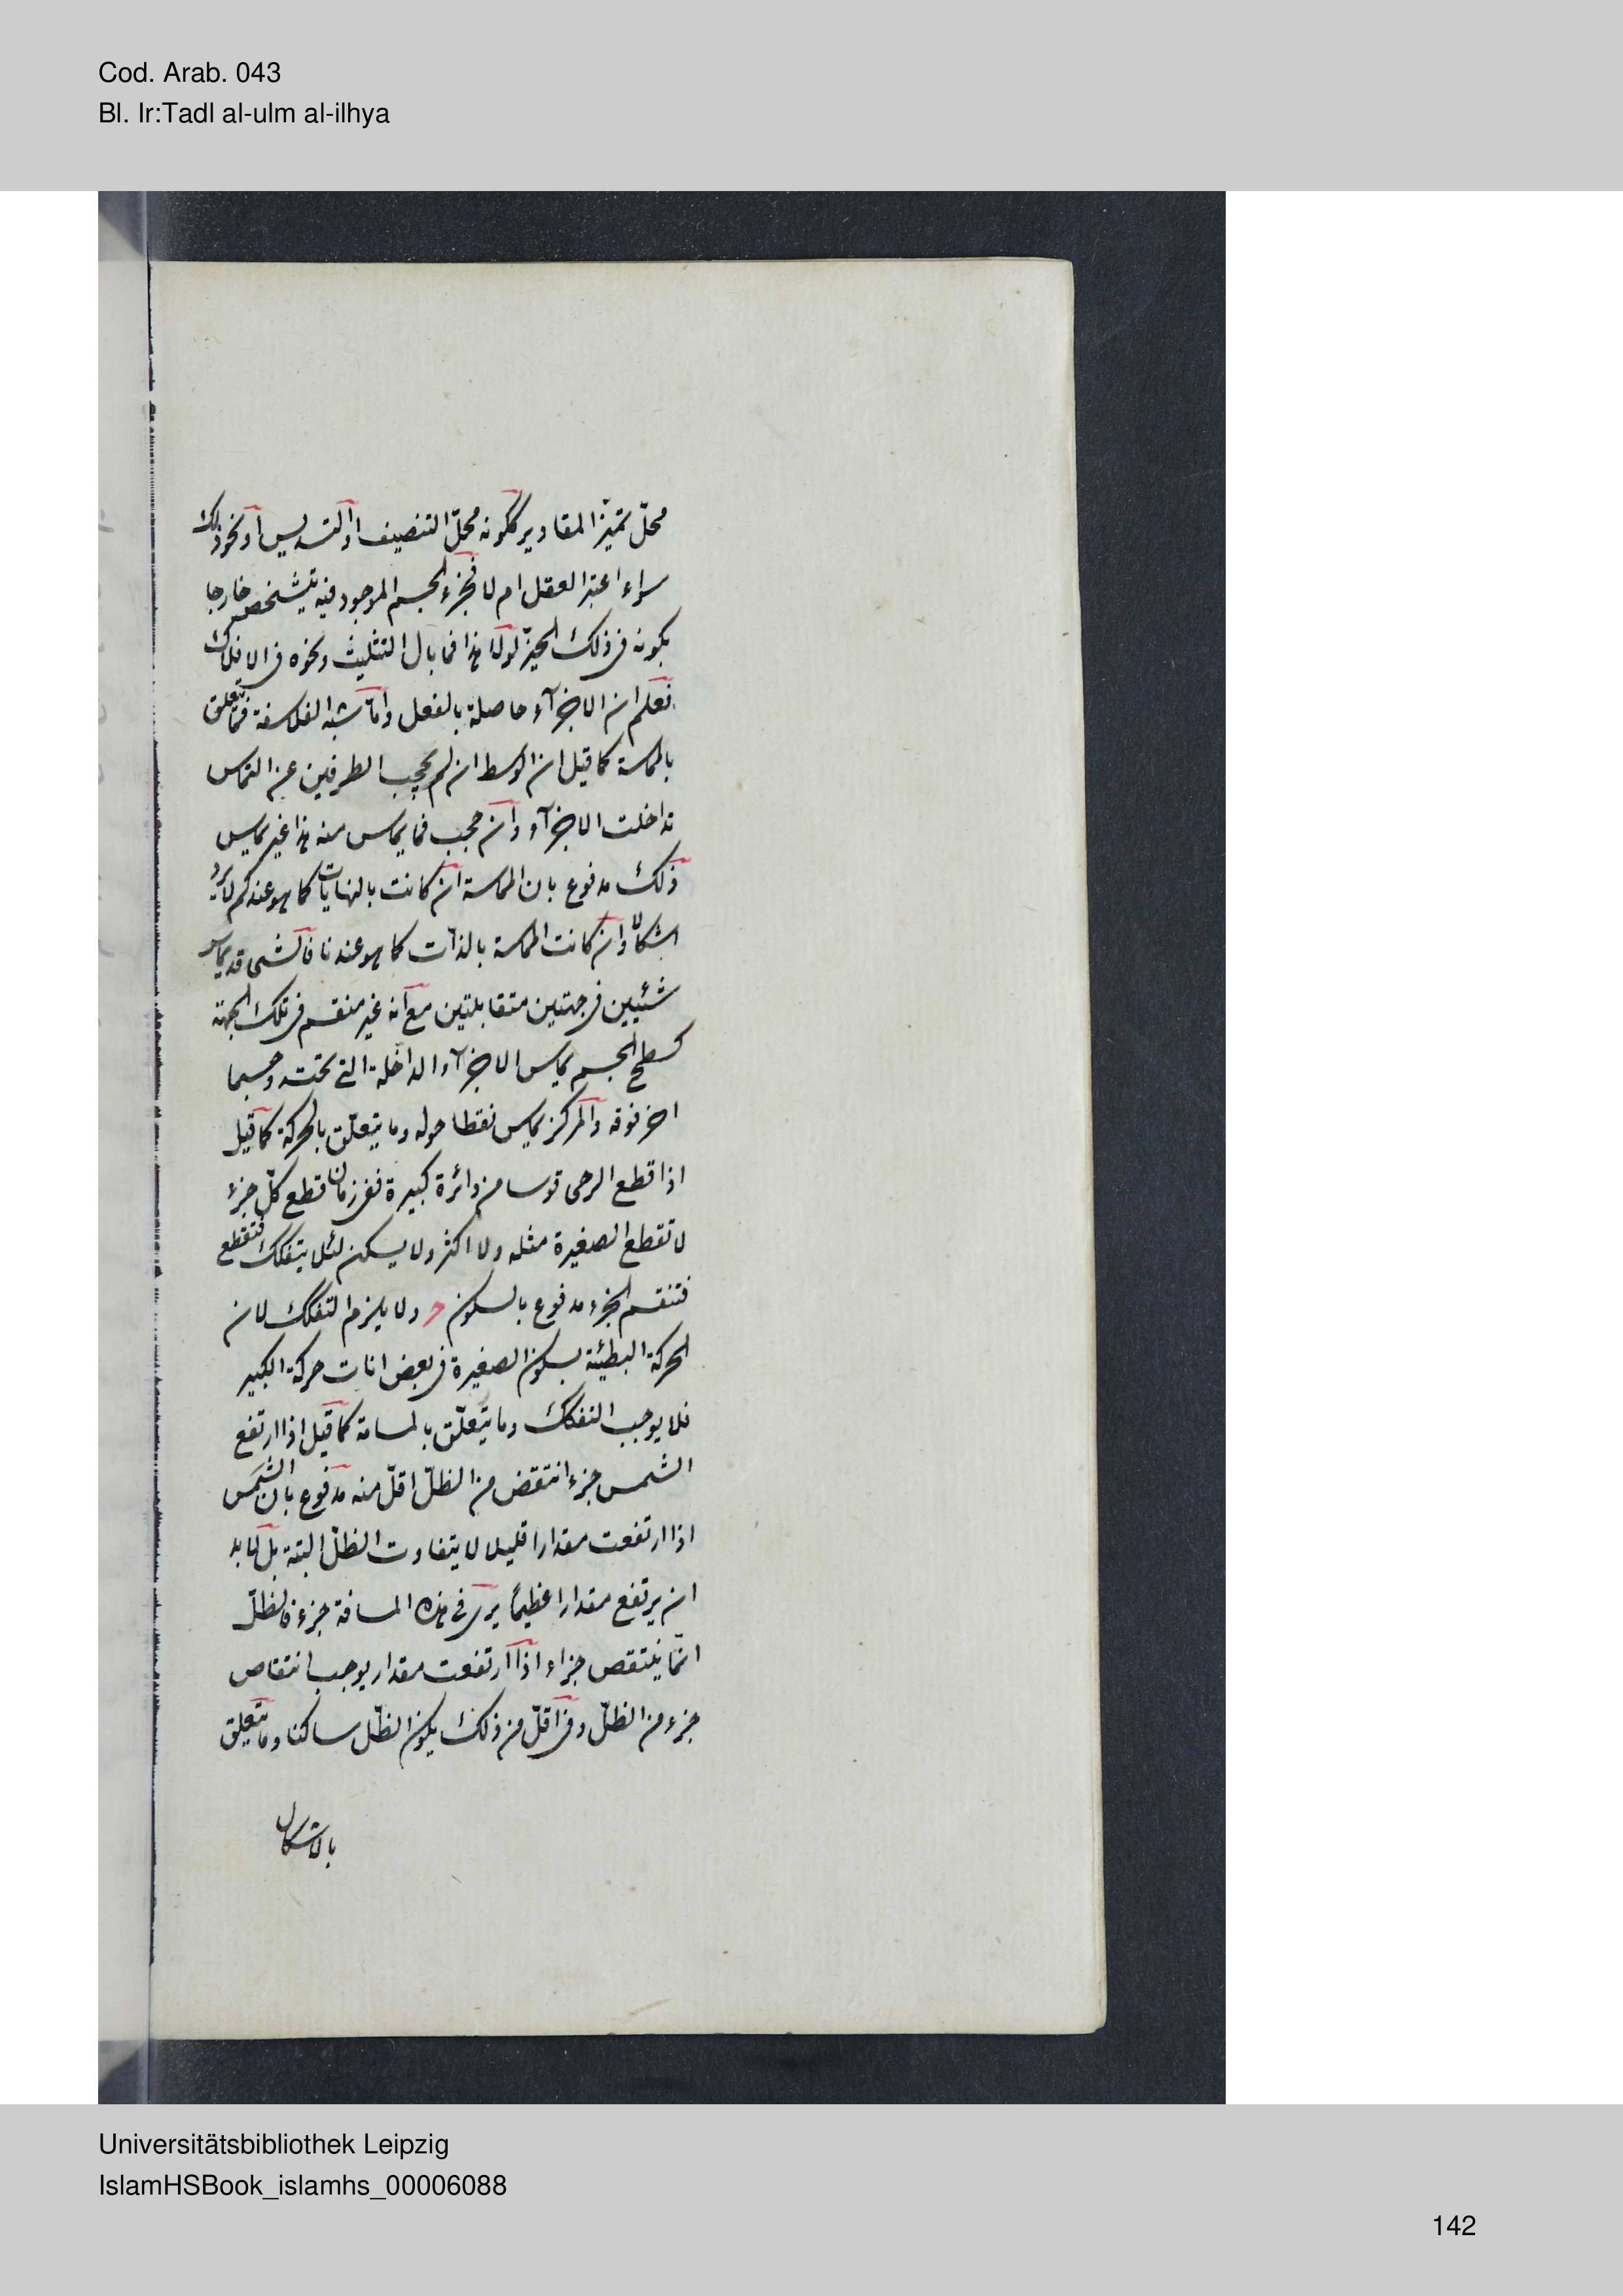 Cod. Arab. 043
Bl. Ir:Tadl al-ulm al-ilhya
محلّ تميّز المقادير ككونه محلّ التنصيف او التسديس او نحو ذلك
سواء اعتبر العقل ام لا فجزء الجسم الموجود فيه يتشخص خارجا
بكونه فى ذلك الحيّز لو لا هذا فما بال التثليث ونحوه فى الافلاك
فعلم ان الاجزآء حاصلة بالفعل وامّا شبه الفلاسفة فما يتعلق
بالمماسة كما قيل ان الوسط ان لم يحجب الطرفين عن التماس
تداخلت الاجزآء وان حجب فما يماس منه هذا غير يماس
ذلك مدفوع بان المماسة ان كانت بالنهايات كما هو عندكم لا يرد
اشكالا وان كانت المماسة بالذات كما هو عندنا فالشى قد يماس
شئيين فى جهتين متقابلتين مع انه غير منقسم فى تلك الجهة
كسطح الجسم يماس الاجزآء الداخلة التى تحته وجسما
اخر فوقه والمركز يماس نقطا حوله وما يتعلّق بالحركة كما قيل
اذا قطع الرحى قوسا من دائرة كبيرة ففى زمان قطع كلّ جزء
لا تقطع الصغيرة مثله ولا اكثر ولا يسكن لئلا يتفكك فتقطع
فتنقسم الجزء مدفوع بالسكون ولا يلزم التفكك لان
الحركة البطئية بسكون الصغيرة فى بعض انات حركة الكبير
فلا يوجب التفكك وما يتعلّق بالمسامتة كما قيل اذا ارتفع
الشمس جزء انتقض من الظلّ اقلّ منه مدفوع بان الشمس
اذا ارتفعت مقدارا قليلا لا يتفاوت الظلّ البتة بل لا بد
ان يرتفع مقدارا عظيمًا يرى فى هذه المسافة جزء فالظلّ
انّما ينتقص جزاء اذا ارتفعت مقدار يوجب انتقاص
جزء من الظلّ وفى اقلّ من ذلك يكون الظلّ ساكنا وما يتعلق
بالاشكال
Universitätsbibliothek Leipzig
IslamHSBook_islamhs_00006088
142